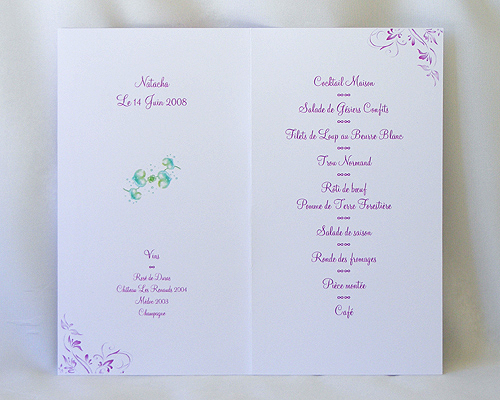 Natacha
Le 14 Juin 2008
Vins
Rosé de Duras
Château Les Renauds 2004
Médoc 2003
Champagne
Cocktail Maison
Salade de Gésiers Confits
Filets de Loup au Beurre Blanc
Trou Normand
Rôti de bœuf
Pomme de Terre Forestière
Salade de saison
Ronde des fromages
Pièce montée
Café